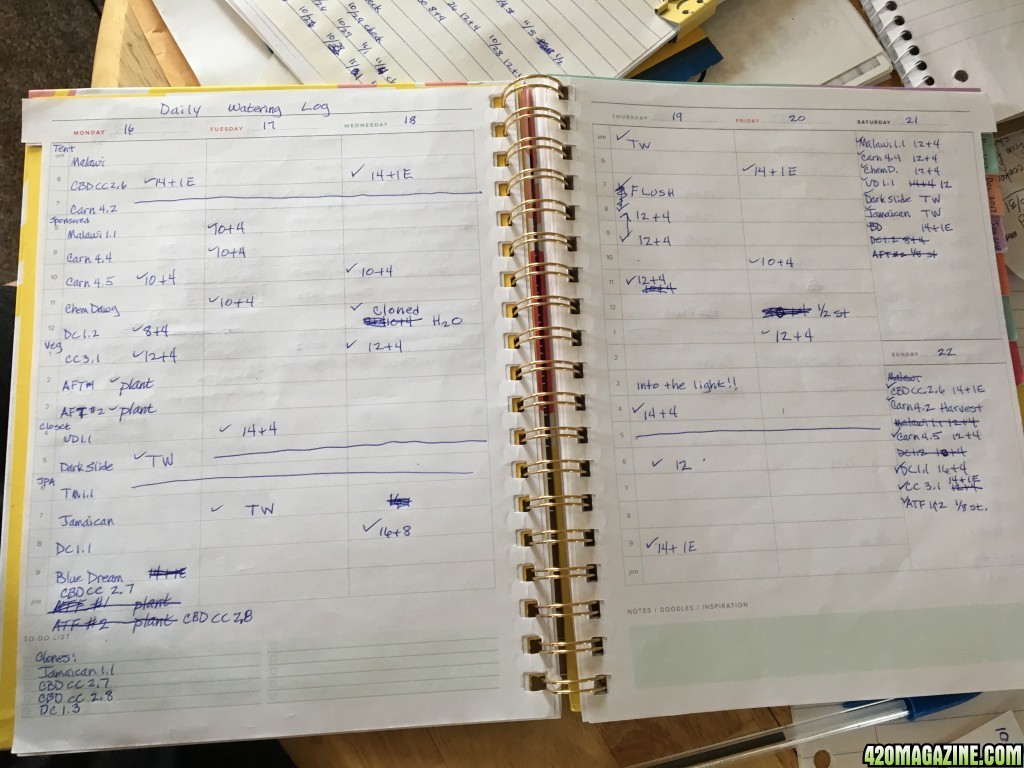 Daily Watering Log
MONDAY 16 TUESDAY 17 WEDNESDAY 18
Tent
Malawi
CBDCC2.6 ✓14+1E ✓ 14+1E
Carn 4.2
Sponsored
Malawi 1.1 ✓10+4
Carn 4.4 ✓10+4
Carn 4.5 ✓10+4 ✓10+4
Chem Dawg ✓10+4 ✓ cloned
DC 1.2 ✓8+4 H2O
Veg
CC 3.1 ✓12+4 ✓ 12+4
AFT#1 ✓plant
AFT #2 ✓plant
Closet
UD1.1 ✓ 14+4
Dark Slide ✓TW
JPA
TM 1.1
Jamaican ✓ TW
DC 1.1 ✓16+8
Blue Dream 14+1E
CBD CC 2.7
ATF #1 plant
ATF #2 plant CBD CC 2.8
TO-DO LIST
Clones:
Jamaican 1.1
CBD CC 2.7
CBD CC 2.8
DC 1.3
THURSDAY 19 FRIDAY 20
✓TW
✓14+1E
FLUSH
12+4
12+4
✓10+4
✓12+4
10+4
1/2 st
✓12+4
into the light!!
✓14+4
✓ 12
✓14+1E
SATURDAY 21
Malawi 1.1 12+4
Carn 4.4 12+4
Chem D. 12+4
UD 1.1 14+4 12
Dark Slide TW
Jamaican TW
BD 14+1E
DC 1.2 8+4
AFT#2 1/8 st
SUNDAY 22
Malawi
CBD CC 2.6 14+1E
Carn 4.2 Harvest
Malawi 1.1 12+4
✓Carn 4.5 12+4
DC 1.2 10+4
✓DC 1.1 16+4
14+1E
✓CC 3.1 12+4
✓ATF 1&2 1/8 st.
NOTES / DOODLES / INSPIRATION
420MAGAZINE.COM